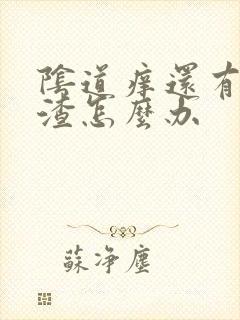 陰道痒還有
渣怎麼办
蘇净塵